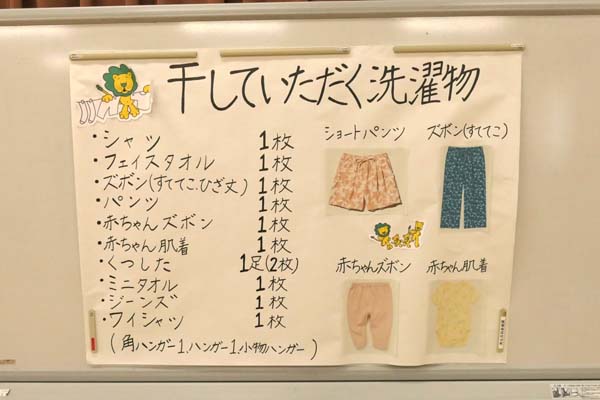 干していただく洗濯物
・シャツ 1枚
・フェイスタオル 1枚
・ズボン(すててこ、ひざ丈) 1枚
・パンツ 1枚
・赤ちゃんズボン 1枚
・赤ちゃん肌着 1枚
・くつした 1足(2枚)
・ミニタオル 1枚
・ジーンズ 1枚
・ワイシャツ 1枚
(角ハンガー1、ハンガー1、小物ハンガー)
ショートパンツ
ズボン(すててこ)
赤ちゃんズボン
赤ちゃん肌着